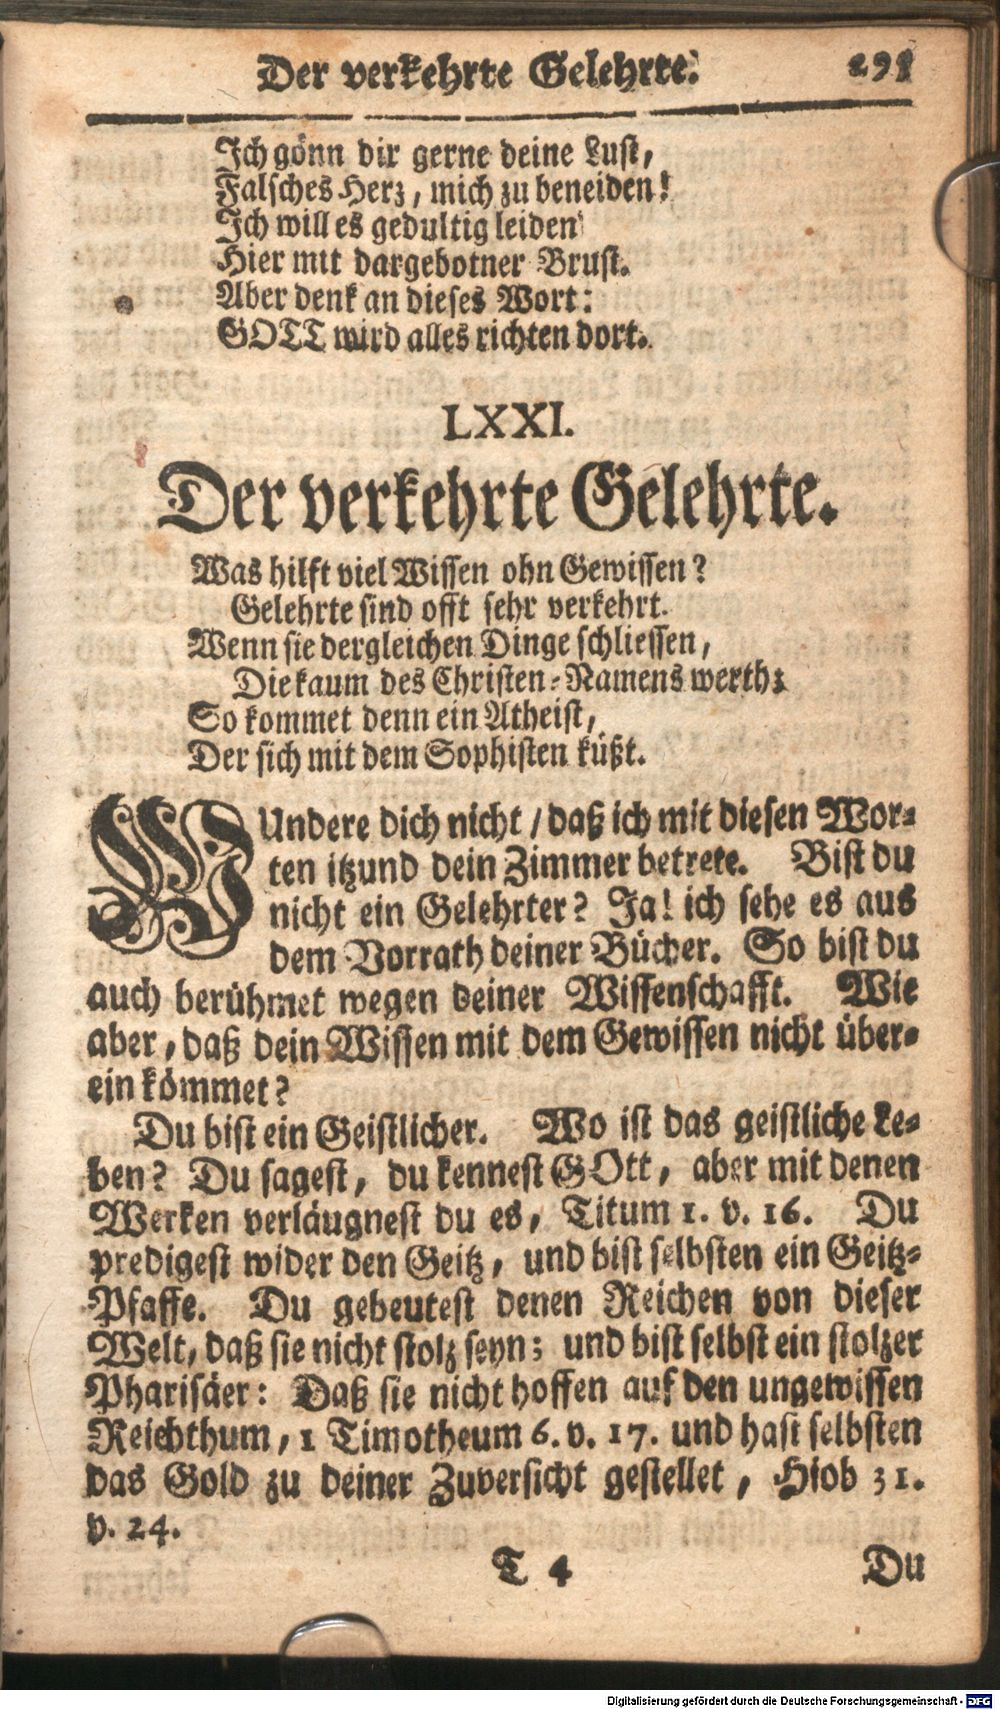 Der verkehrte Gelehrte. 295
Ich gönn dir gerne deine Lust,
Falsches Herz, mich zu beneiden!
Ich will es gedultig leiden
Hier mit dargebotner Brust.
Aber denk an dieses Wort:
GOTT wird alles richten dort.
LXXI.
Der verkehrte Gelehrte.
Was hilft viel Wissen ohn Gewissen?
Gelehrte sind offt sehr verkehrt.
Wenn sie dergleichen Dinge schliessen,
Die kaum des Christen-Namens werth;
So kommet denn ein Atheist,
Der sich mit dem Sophisten küßt.
WUndere dich nicht / daß ich mit diesen Wor-
ten itzund dein Zimmer betrete. Bist du
nicht ein Gelehrter? Ja! ich sehe es aus
dem Vorrath deiner Bücher. So bist du
auch berühmet wegen deiner Wissenschafft. Wie
aber, daß dein Wissen mit dem Gewissen nicht über-
ein kömmet?
Du bist ein Geistlicher. Wo ist das geistliche Le-
ben? Du sagest, du kennest GOtt, aber mit denen
Werken verläugnest du es, Titum 1. v. 16. Du
predigest wider den Geitz, und bist selbsten ein Geitz-
Pfaffe. Du gebeutest denen Reichen von dieser
Welt, daß sie nicht stolz seyn; und bist selbst ein stolzer
Pharisäer: Daß sie nicht hoffen auf den ungewissen
Reichthum, 1 Timotheum 6. v. 17. und hast selbsten
das Gold zu deiner Zuversicht gestellet, Hiob 31.
v. 24.
T 4 Du
Digitalisierung gefördert durch die Deutsche Forschungsgemeinschaft - DFG